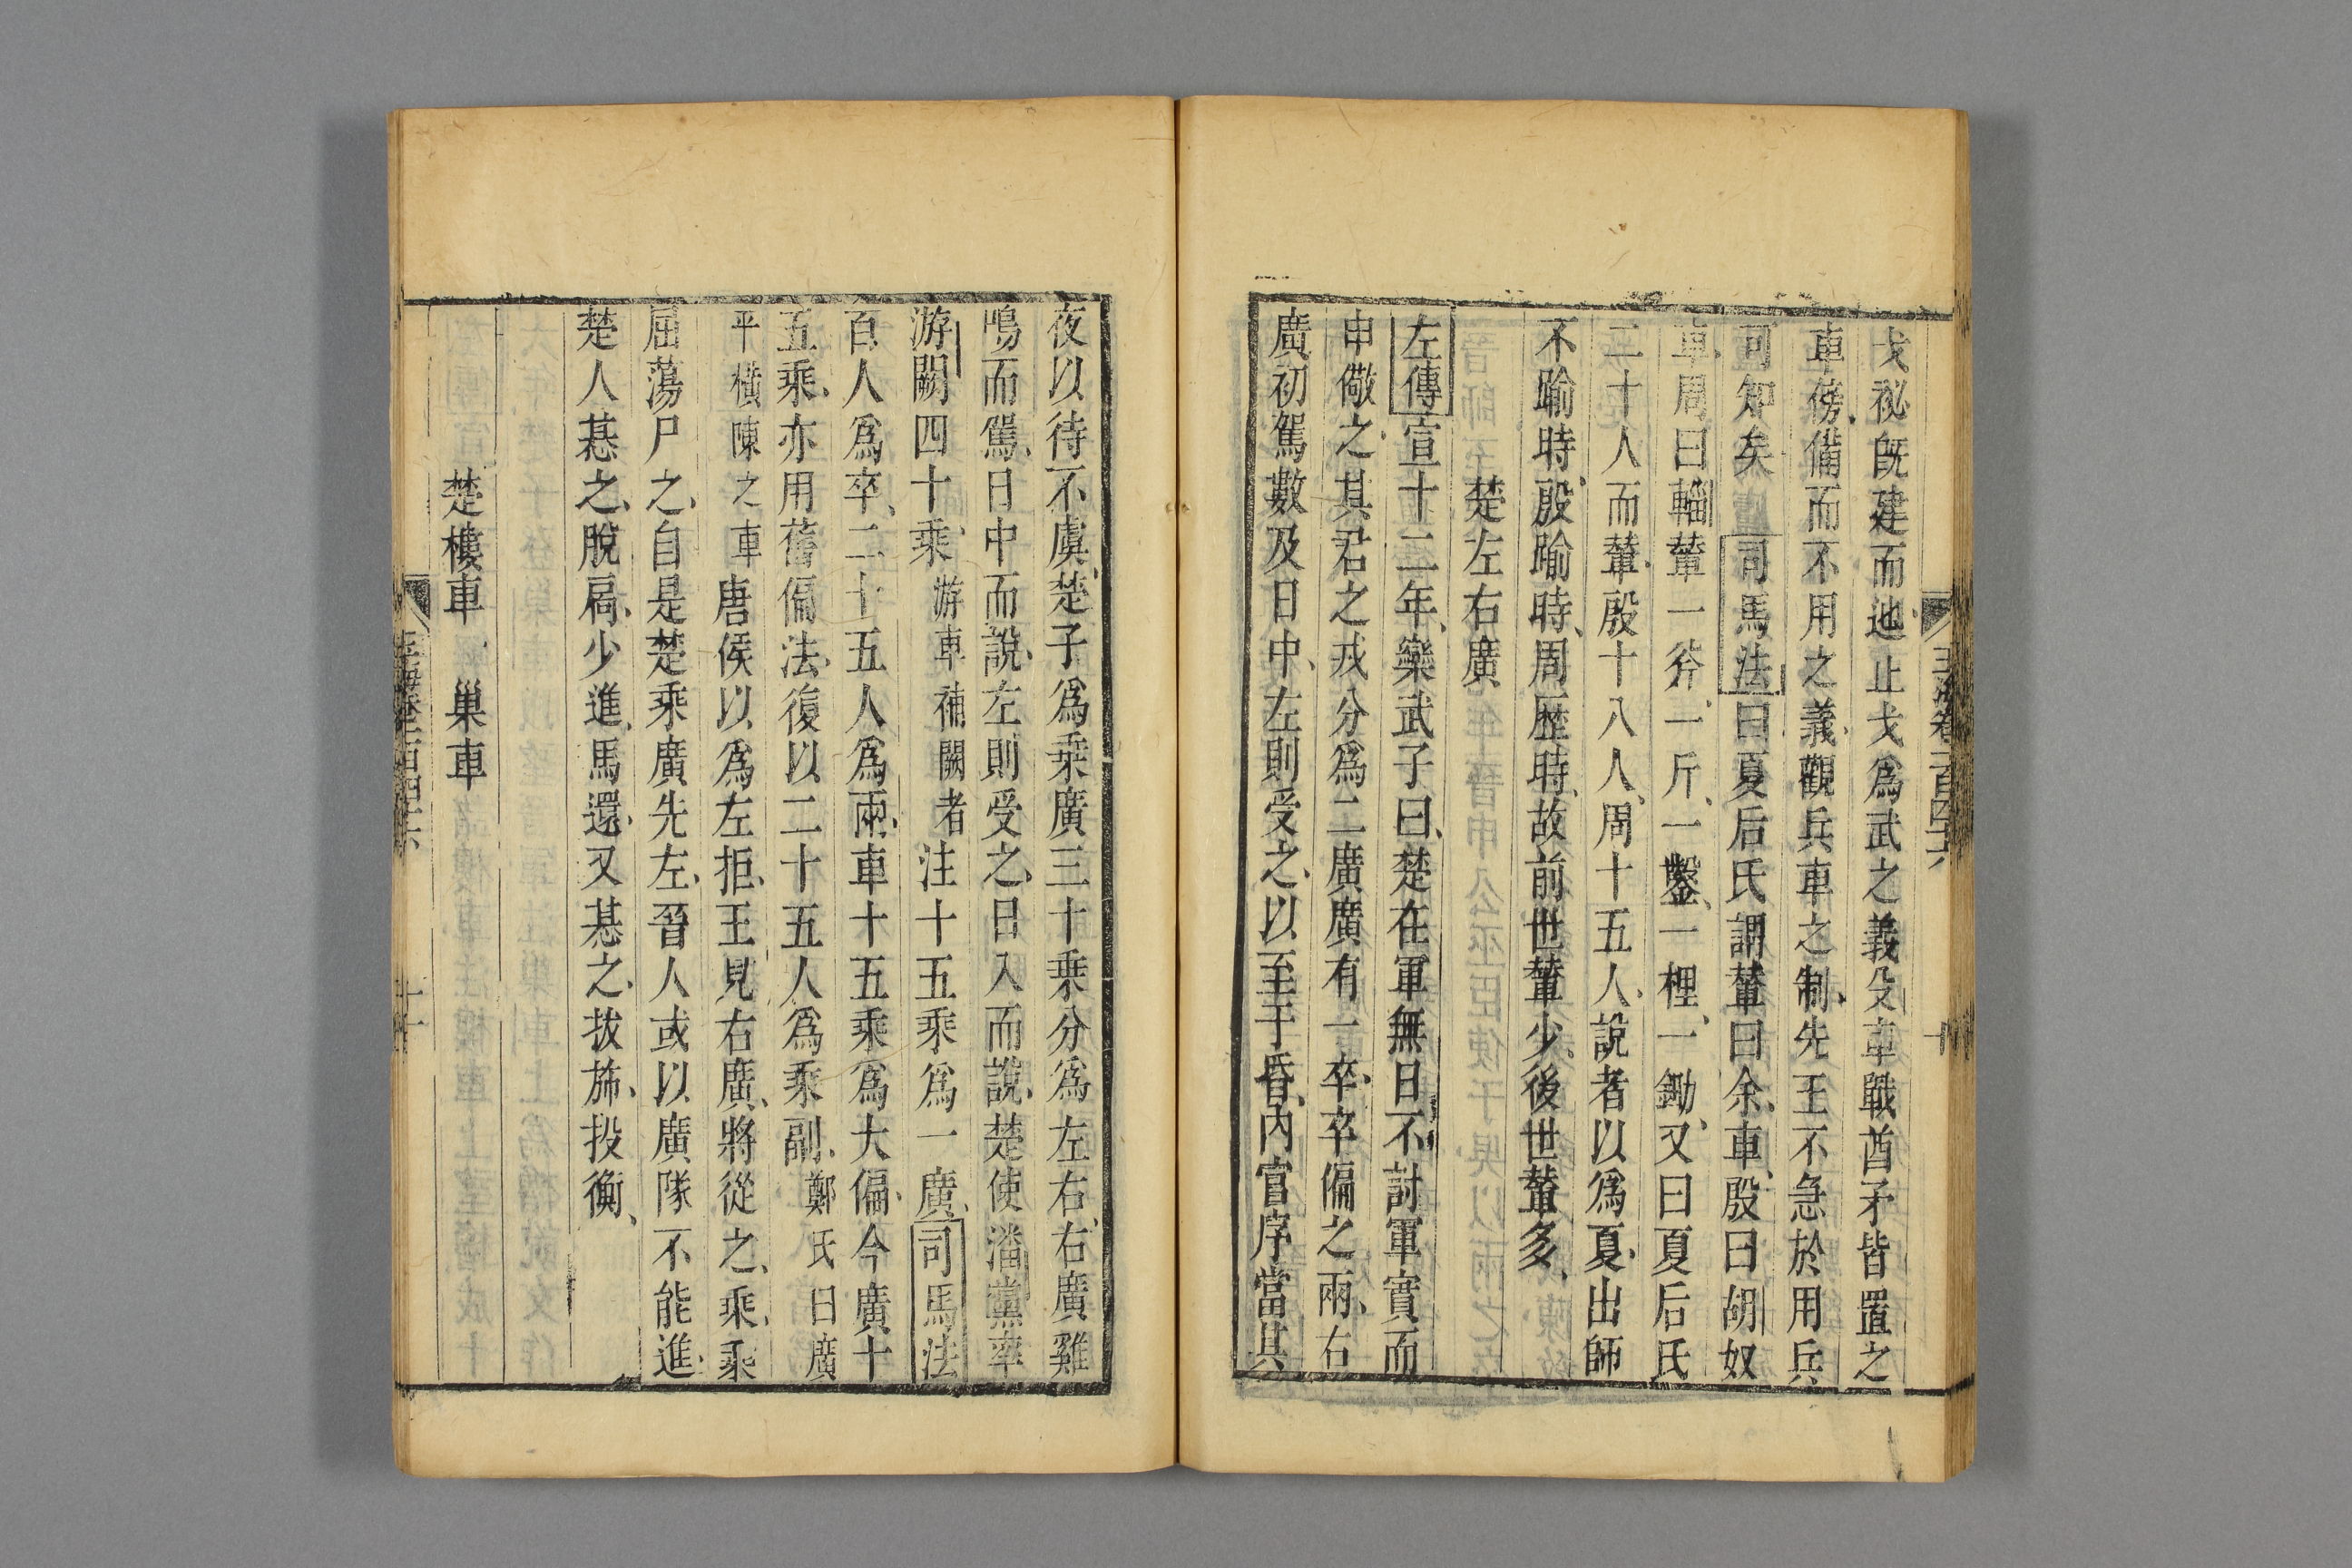 玉海卷一百四十六
十
戈祕既建而迆止戈爲武之義殳車戟酋矛皆置之
車傍備而不用之義觀兵車之制先王不急於用兵
可知矣司馬法曰夏后氏謂輦曰余車殷曰胡奴
車周曰輜輦一斧一斤一鑿一梩一鋤又曰夏后氏
二十人而輦殷十八人周十五人說者以爲夏出師
不踰時殷踰時周歷時故前世輦少後世輦多
楚左右廣
左傳宣十二年欒武子曰楚在軍無日不討軍實而
申儆之其君之戎分爲二廣廣有一卒卒偏之兩右
廣初駕數及日中左則受之以至于昏內官序當其
夜以待不虞楚子爲乗廣三十乗分爲左右右廣雞
鳴而駕日中而說左則受之日入而說楚使潘黨率
游闕四十乘游車補闕者注十五乘爲一廣司馬法
百人爲卒二十五人爲兩車十五乘爲大偏今廣十
五乘亦用舊偏法復以二十五人爲乘副鄭氏曰廣
平橫陳之車唐侯以爲左拒王見右廣將從之乘乘
屈蕩尸之自是楚乘廣先左晉人或以廣隊不能進
楚人惎之脫扃少進馬還又惎之拔斾投衡
楚樓車 巢車
玉海卷一百四十六
十一